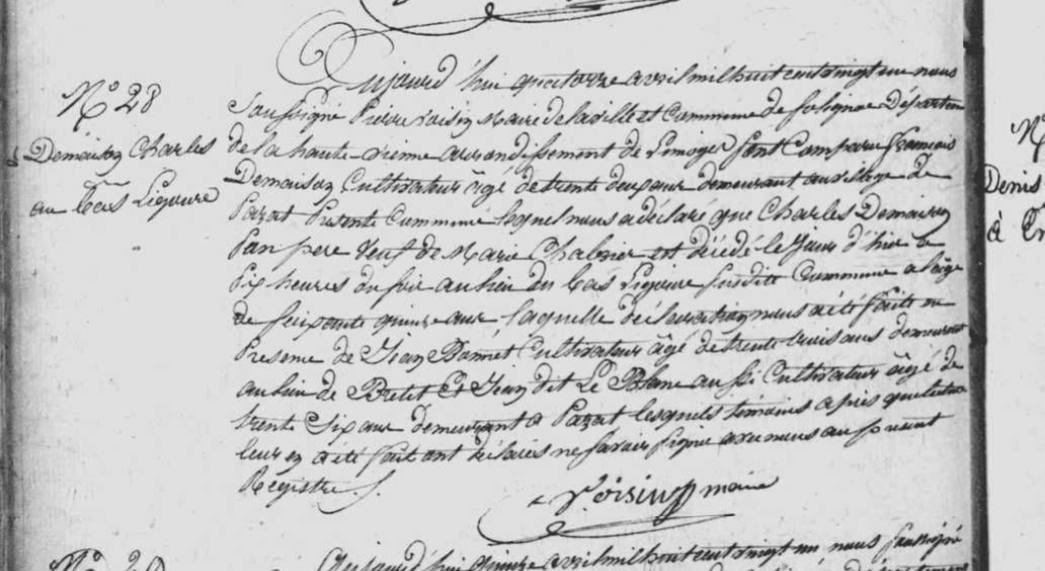 N° 28
Demaison Charles
au bas Ligoure
Aujourd'hui quatorze avril mil huit cent vingt un nous
Soussigné Pierre Voisin Maire de la ville et Commune de Solignac Départem
de la haute-vienne arrondissement de Limoges sont Comparu français
Demaison Cultivateur âgé de trente deux ans demeurant au village de
Pazat Presente Commune lequel nous a déclaré que Charles Demaison
Son pere Veuf de Marie Chabrier est décédé le Jour d'hier a
Six heures du soir au lieu du bas Ligoure susdite Commune a l'âge
de soixante quinze ans laquelle déclaration nous a été faite en
Presence de Jean Bonnet Cultivateur âgé de trente trois ans demeurant
au lieu de Bretit Et Jean dit Le Blanc aussi Cultivateur âgé de
trente Six ans demeurant a Pazat lesquels témoins apres que lecture
leur en a été fait ont déclarés ne savoir signer avec nous au present
Registre.
Voisin maire
N° 29
Aujourd'hui quinze avril mil huit cent vingt un nous soussigné
N
Denis
à